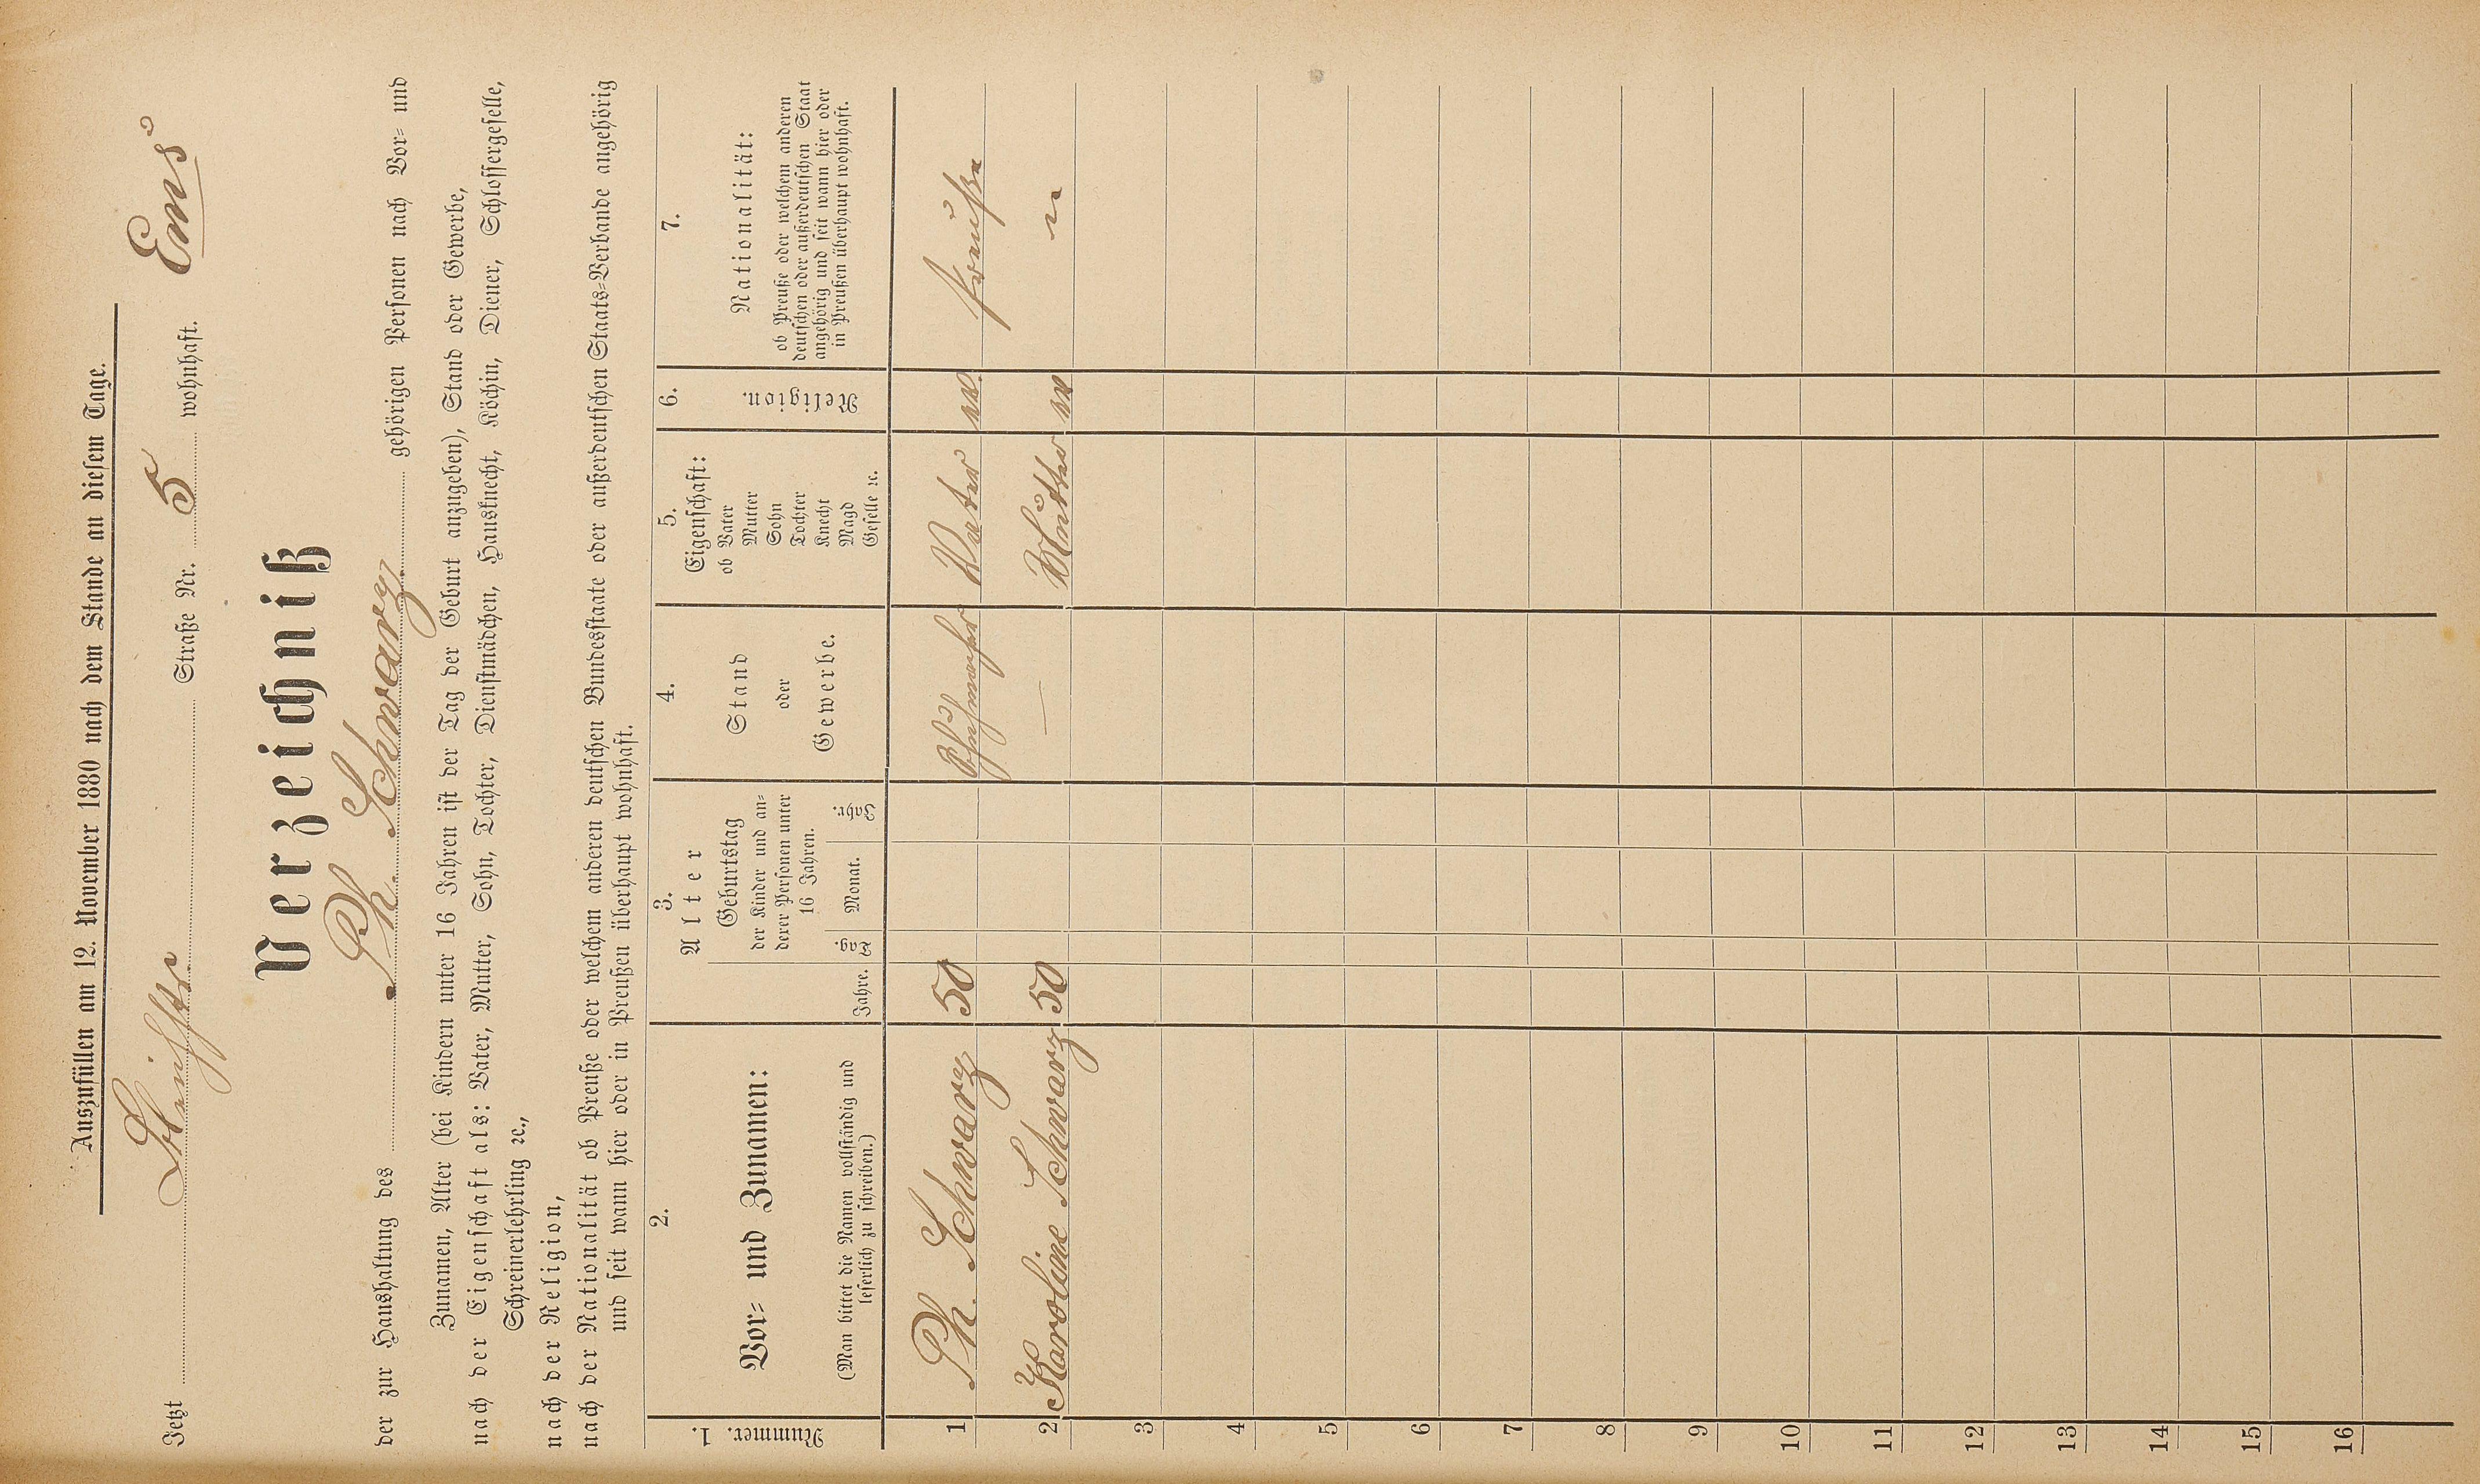 Auszufüllen am 12. November 1880 nach dem Stande an diesem Tage.
Jetzt Straße Nr. 5 wohnhaft. Ems
Verzeichniß
der zur Haushaltung des Ph. Schwarz gehörigen Personen nach Vor- und
Zunamen, Alter (bei Kindern unter 16 Jahren ist der Tag der Geburt anzugeben), Stand oder Gewerbe,
nach der Eigenschaft als: Vater, Mutter, Sohn, Tochter, Dienstmädchen, Hausknecht, Köchin, Diener, Schlossergeselle,
Schreinerlehrling ꝛc.,
nach der Religion,
nach der Nationalität ob Preuße oder welchem anderen deutschen Bundesstaate oder außerdeutschen Staats-Verbande angehörig
und seit wann hier oder in Preußen überhaupt wohnhaft.
1.
Nummer.
2.
Vor- und Zunamen:
(Man bittet die Namen vollständig und
leserlich zu schreiben.)
3.
Alter
Jahre.
Geburtstag
der Kinder und an-
derer Personen unter
16 Jahren.
Tag.
Monat.
Jahr.
4.
Stand
oder
Gewerbe.
5.
Eigenschaft:
ob Vater
Mutter
Sohn
Tochter
Knecht
Magd
Geselle ꝛc.
6.
Religion.
7.
Nationalität:
ob Preuße oder welchem anderen
deutschen oder außerdeutschen Staat
angehörig und seit wann hier oder
in Preußen überhaupt wohnhaft.
1 Ph. Schwarz 50 Schuhmacher Vater ev. Preuße
2 Karoline Schwarz 50 — Mutter ev "
3
4
5
6
7
8
9
10
11
12
13
14
15
16